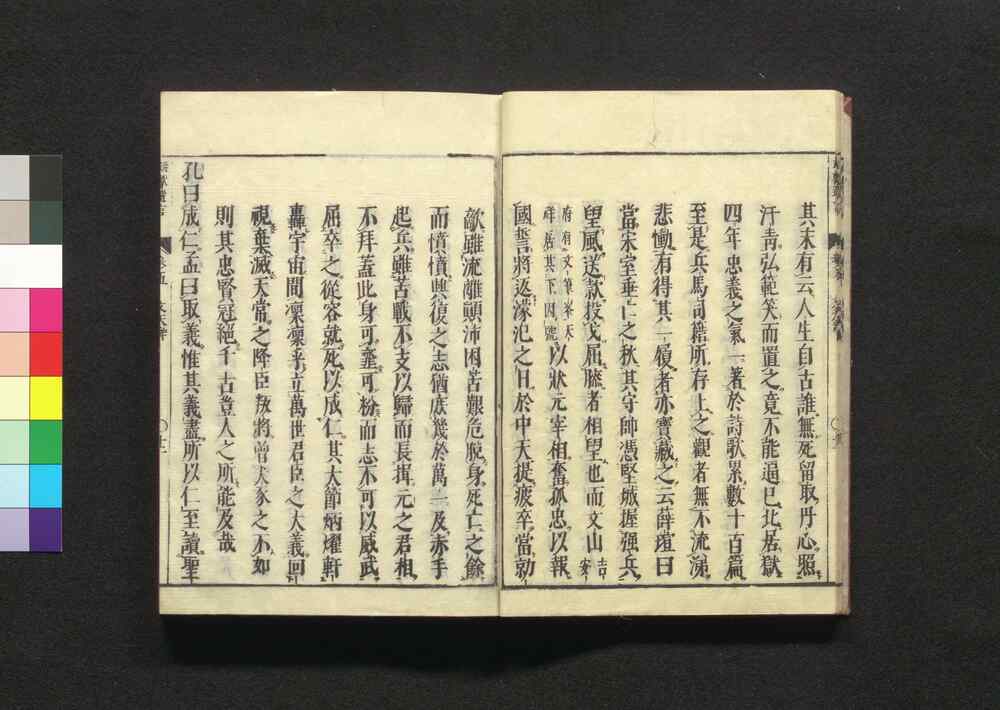 其末有云人生自古誰無死留取丹心照
汗靑弘範笑而置之竟不能逼已北居獄
四年忠義之氣一著於詩歌累數十百篇
至是兵馬司籍所存上之觀者無不流涕
悲慟有得其一履者亦寶藏之云薛瑄曰
當宋室垂亡之秋其守帥憑堅城握强兵
望風送欵投戈屈膝者相望也而文山吉安
府有文筆峯天祥居其下因號以狀元宰相奮孤忠以報
國誓將返濛汜之日於中天提疲卒當勍
敵雖流離顚沛困苦艱危脫身死亡之餘
而憤憤興復之志猶庶幾於萬一及赤手
起兵雖苦戰不支以歸而長揖元之君相
不拜葢此身可虀可粉而志不可以威武
屈卒之從容就死以成仁其大節炳燿軒
轟宇宙間凜凜乎立萬世君臣之大義回
視棄滅天常之降臣叛將曾犬豕之不如
則其忠賢冠絕千古豈人之所能及哉
孔曰成仁孟曰取義惟其義盡所以仁至讀聖